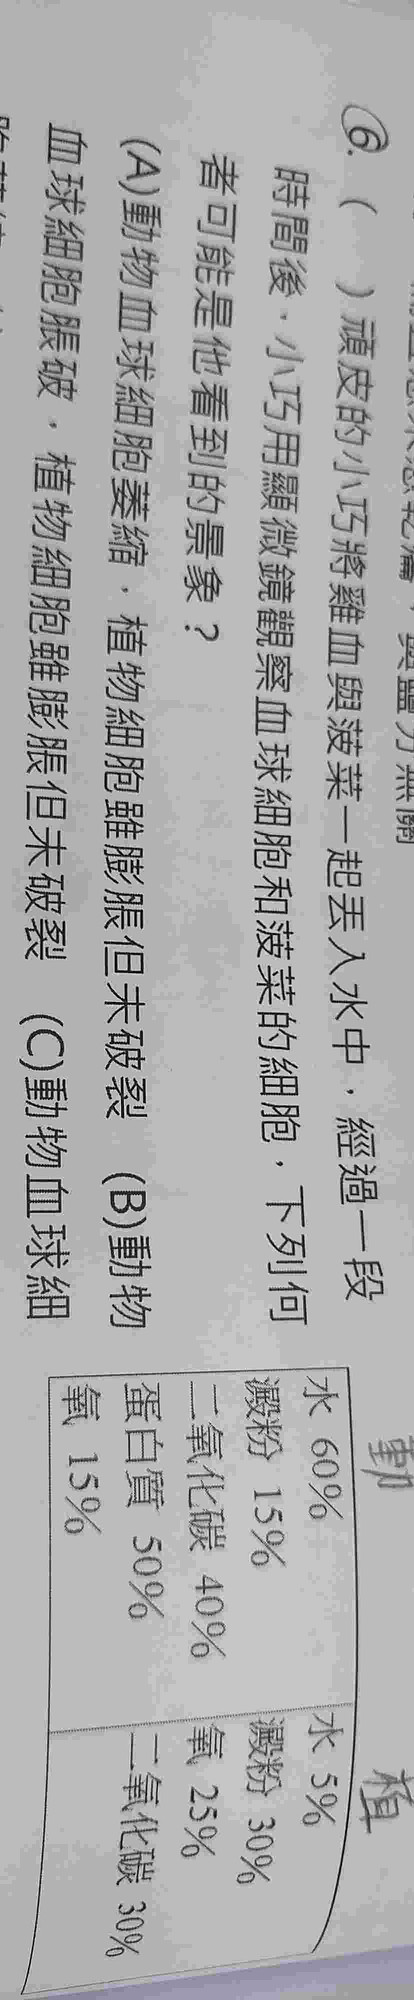 6. ( )頑皮的小巧將雞血與菠菜一起丟入水中，經過一段
時間後，小巧用顯微鏡觀察血球細胞和菠菜的細胞，下列何
者可能是他看到的景象？
(A)動物血球細胞萎縮，植物細胞雖膨脹但未破裂 (B)動物
血球細胞脹破，植物細胞雖膨脹但未破裂 (C)動物血球細
動
水 60%
澱粉 15%
二氧化碳 40%
蛋白質 50%
氧 15%
植
水 5%
澱粉 30%
氧 25%
二氧化碳 30%